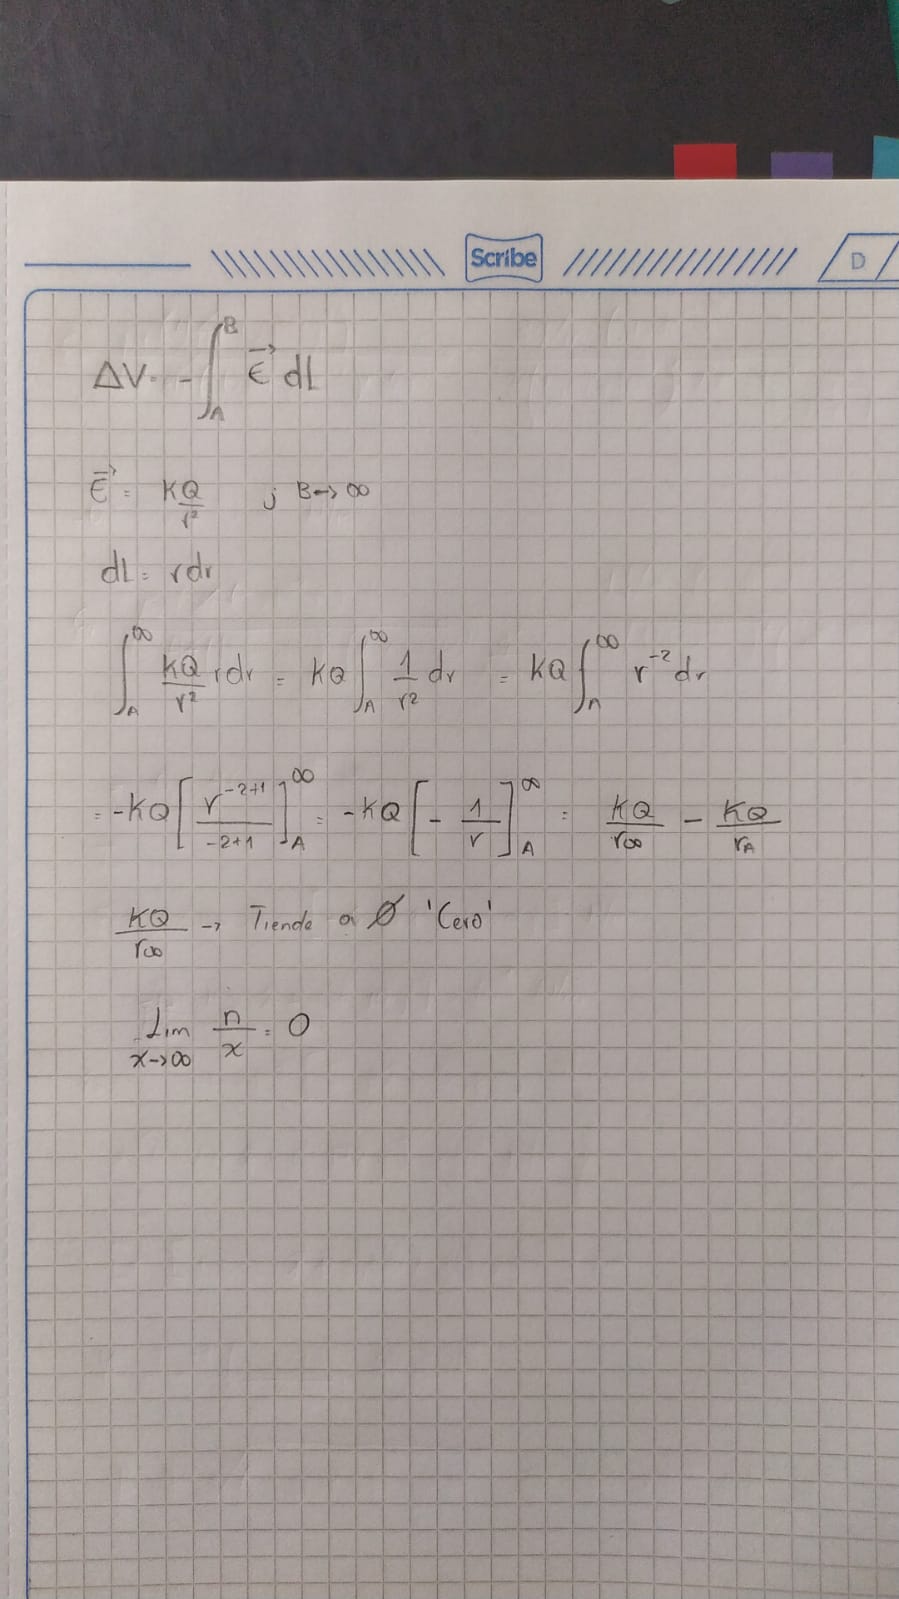 Scribe D
ΔV = -∫_A^B E⃗ dl
E⃗ = KQ/r² ; B→∞
dl = rdr
∫_A^∞ KQ/r² rdr = KQ ∫_A^∞ 1/r² dr = KQ ∫_A^∞ r⁻² dr
= -KQ [r⁻²⁺¹/-2+1]_A^∞ = -KQ [-1/r]_A^∞ = KQ/r∞ - KQ/rA
KQ/r∞ → Tiende a Ø 'Cero'
Lim x→∞ n/x = 0